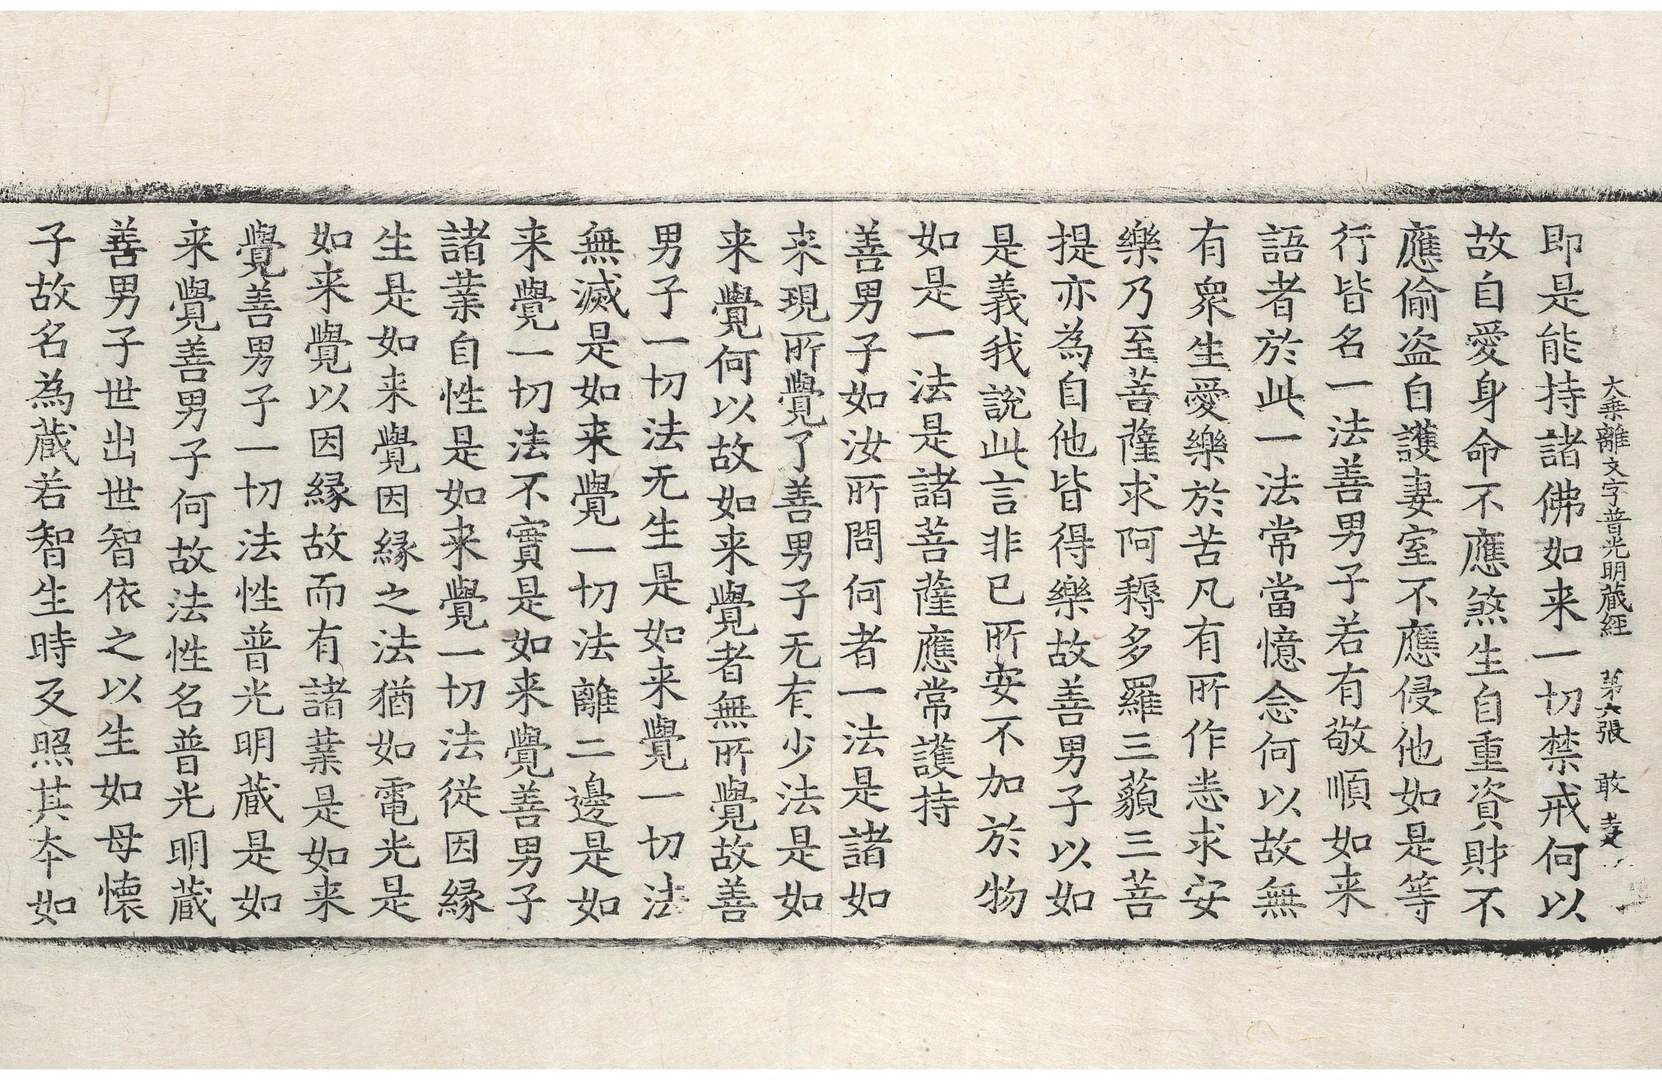 大乘離文字普光明藏經 第六張 敢
即是能持諸佛如来一切禁戒何以
故自愛身命不應煞生自重資財不
應偷盜自護妻室不應侵他如是等
行皆名一法善男子若有敬順如来
語者於此一法常當憶念何以故無
有衆生愛樂於苦凡有所作悉求安
樂乃至菩薩求阿耨多羅三藐三菩
提亦為自他皆得樂故善男子以如
是義我說此言非已所安不加於物
如是一法是諸菩薩應常護持
善男子如汝所問何者一法是諸如
来現所覺了善男子无有少法是如
来覺何以故如来覺者無所覺故善
男子一切法无生是如来覺一切法
無滅是如来覺一切法離二邊是如
来覺一切法不實是如来覺善男子
諸業自性是如来覺一切法從因緣
生是如来覺因緣之法猶如電光是
如来覺以因緣故而有諸業是如来
覺善男子一切法性普光明藏是如
来覺善男子何故法性名普光明藏
善男子世出世智依之以生如母懷
子故名為藏若智生時反照其本如